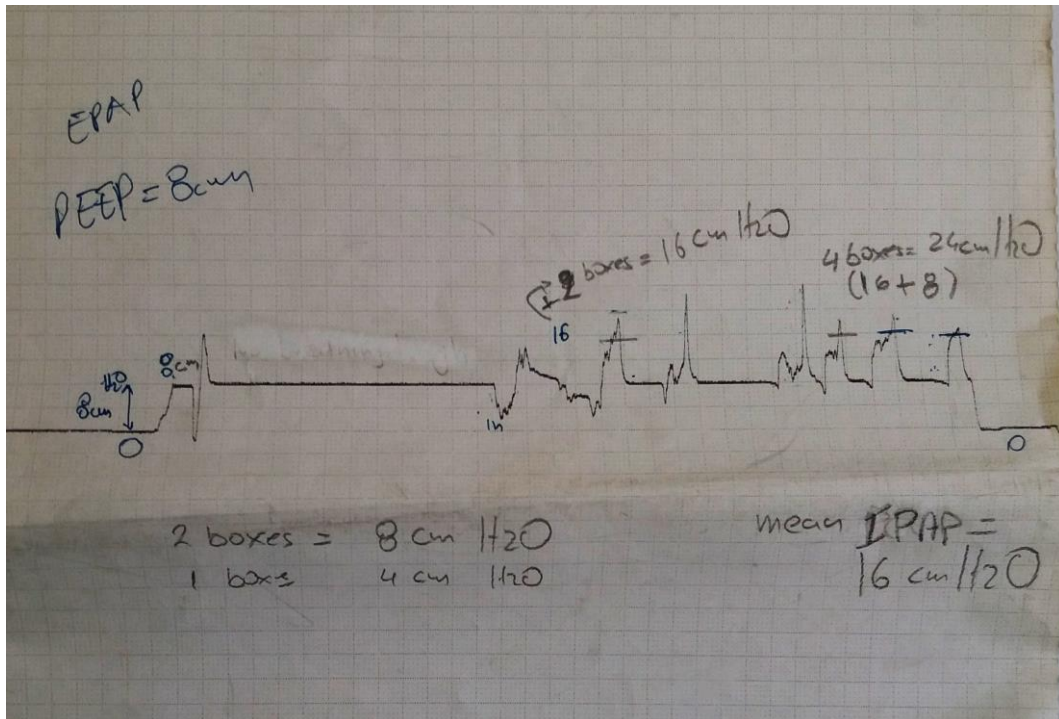 EPAP
PEEP = 8cm
boxes = 16 cm H2O
4 boxes = 24 cm H2O
(16 + 8)
16
8cm
H2O
8cm
in
0
0
2 boxes = 8 cm H2O
1 boxs 4 cm H2O
mean IPAP =
16 cm H2O